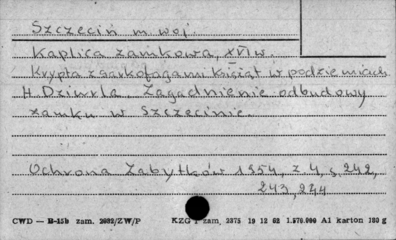 Szczecin m woj.
Kaplica zamkowa, XVI w.
Krypta z sarkofagami książąt w podziemiach
H. Dziurla Zagadnienie odbudowy
zamku w Szczecinie.
Ochrona Zabytków 1954, z 4, s. 242,
243, 244
CWD — B-15b zam. 2032/ZW/P KZG zam. 2375 19 12 52 1.570.000 A1 karton 180 g